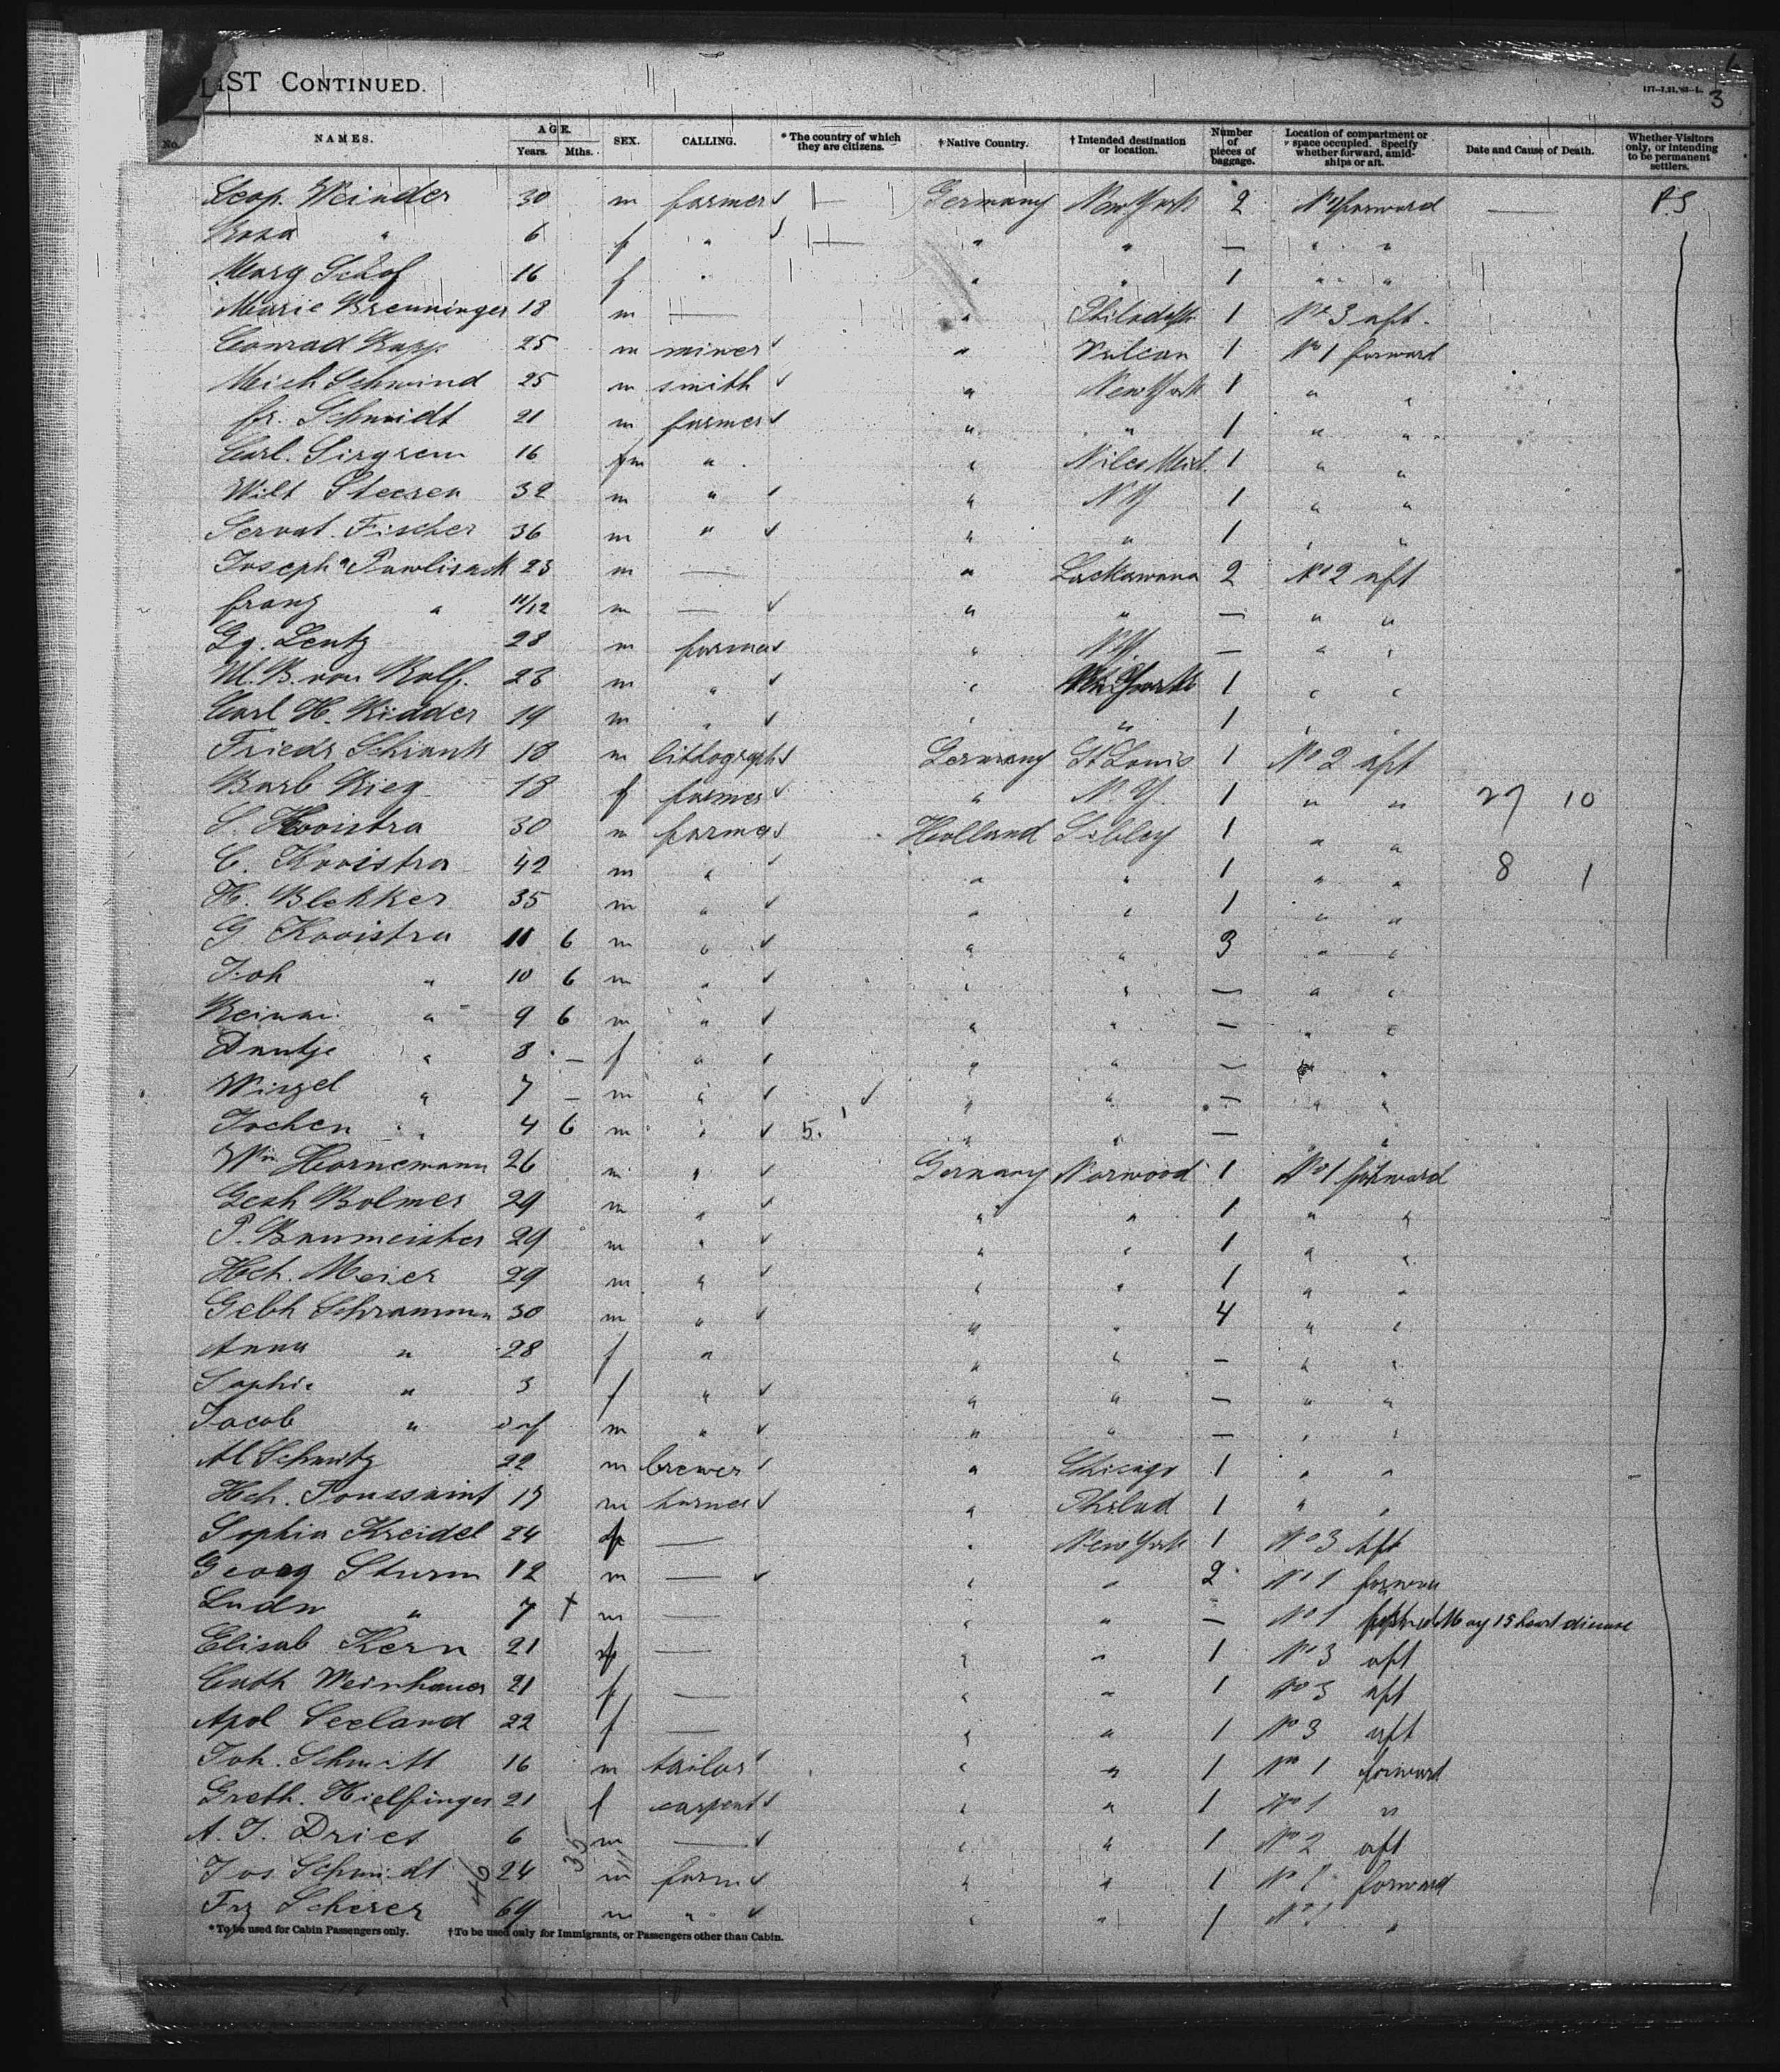 LIST CONTINUED.
6
117—1,21,'93—L.
3
No. NAMES. AGE. Years. Mths. SEX. CALLING. * The country of which they are citizens. † Native Country. † Intended destination or location. Number of pieces of baggage. Location of compartment or space occupied. Specify whether forward, amidships or aft. Date and Cause of Death. Whether Visitors only, or intending to be permanent settlers.
Leop. Weinder 30 m farmer Germany New York 2 forward — P.S
Rosa " 6 f " " " — " "
Marg 16 f " " " 1 " "
Marie Brenninger 18 m — " Philadelph 1 No 3 aft
Conrad Rapp 25 m miner " Vulcan 1 No 1 forward
Mich Schwind 25 m smith " New York 1 " "
Fr. Schmidt 21 m farmer " " 1 " "
Carl. 16 fm " " Niles Mich. 1 " "
Wilh 32 m " " N Y 1 " "
Servat. Fischer 36 m " " " 1 " "
Joseph Pawlisack 23 m — " Lackawana 2 No 2 aft
Franz " 11/12 m — " " — " "
Gg. Lentz 28 m farmer " N.Y. — " "
M. B. von Rolf. 28 m " " New York 1 " "
Carl H. Ridder 19 m " " " 1 " "
Friedr Schrank 18 m lithograph Germany St Louis 1 No 2 aft
Barb Rieg 18 f farmer " N.Y. 1 " " 27 10
S. Kooistra 30 m farmer Holland Sibley 1 " "
C. Kooistra 42 m " " " 1 " " 8 1
H. Blekker 35 m " " " 1 " "
G. Kooistra 11 6 m " " " 3 " "
Joh " 10 6 m " " " — " "
" 9 6 m " " " — " "
Dautje " 8 — f " " " — " "
" 7 — m " " " — " "
Jochen " 4 6 m " 5. " " — "
Wm Hornemann 26 m " Germany Norwood 1 No 1 forward
Gerh Bolmer 29 m " " " 1 " "
P. Baumeister 29 m " " " 1 " "
Hch. Meier 29 m " " " 1 " "
Gebh Schramm 30 m " " " 4 " "
Anna " 28 f " " " — " "
Sophie " 3 f " " " — " "
Jacob " inf m " " " — " "
Al Schmitz 22 m brewer " Chicago 1 " "
Hch. Toussaint m " Philad 1 " "
Sophia Kreidel 24 f — " New York 1 No 3 aft
Georg Sturm 12 m — " " 2 No 1 forward
Ludw " 7 † m — " " — No 1 May 15 heart disease
Elisab Kern 21 f — " " 1 No 3 aft
Cath Weinhauer 21 f — " " 1 No 3 aft
Apol Seeland 22 f — " " 1 No 3 aft
Joh. Schmitt 16 m tailor " " 1 No 1 forward
Greth. Hielfinger 21 f carpent " " 1 No 1 "
A. J. Dries 6 m — " " 1 No 2 aft
Jos Schmidt 46 24 35 m farm " " 1 No 1 forward
Frz Scherer 69 m " " " 1 No 1 "
* To be used for Cabin Passengers only. † To be used only for Immigrants, or Passengers other than Cabin.